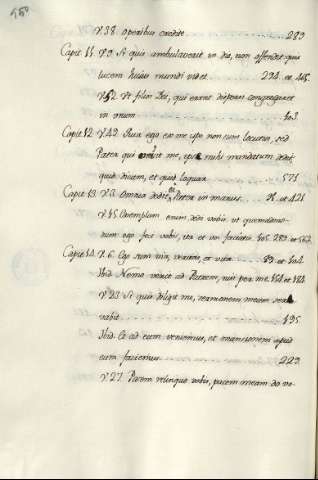 V. 38. operibus credite . . . . . . . . . . 289
Capit. 11. V. 9. Si quis ambulaverit in die, non offendit quia
lucem huius mundi videt . . . . . . . 294. et 445.
V. 52. Vt filios Dei, qui erant dispersi congregaret
in unum . . . . . . . . . . 103.
Capit. 12. V. 49. Quia ego ex me ipso non sum locutus, sed
Pater qui misit me, ipse mihi mandatum dedit
quid dicam, et quid loquar . . . . . . . 571.
Capit. 13. V. 3. Omnia dedit ei Pater in manus . . et 421
V. 15. Exemplum enim dedi vobis, ut quemadmo-
dum ego feci vobis, ita et vos faciatis
Capit. 14. V. 6. Ego sum via, veritas, et vita . . . et 404
Ibid. Nemo venit ad Patrem, nisi per me. 184 et 184
V. 23. Si quis diligit me, sermonem meum ser-
vabit . . . . . . . . . . 495.
Ibid. Et ad eum veniemus, et mansionem apud
eum faciemus . . . . . . . . . . 229.
V. 27. Pacem relinquo vobis, pacem meam do vo-